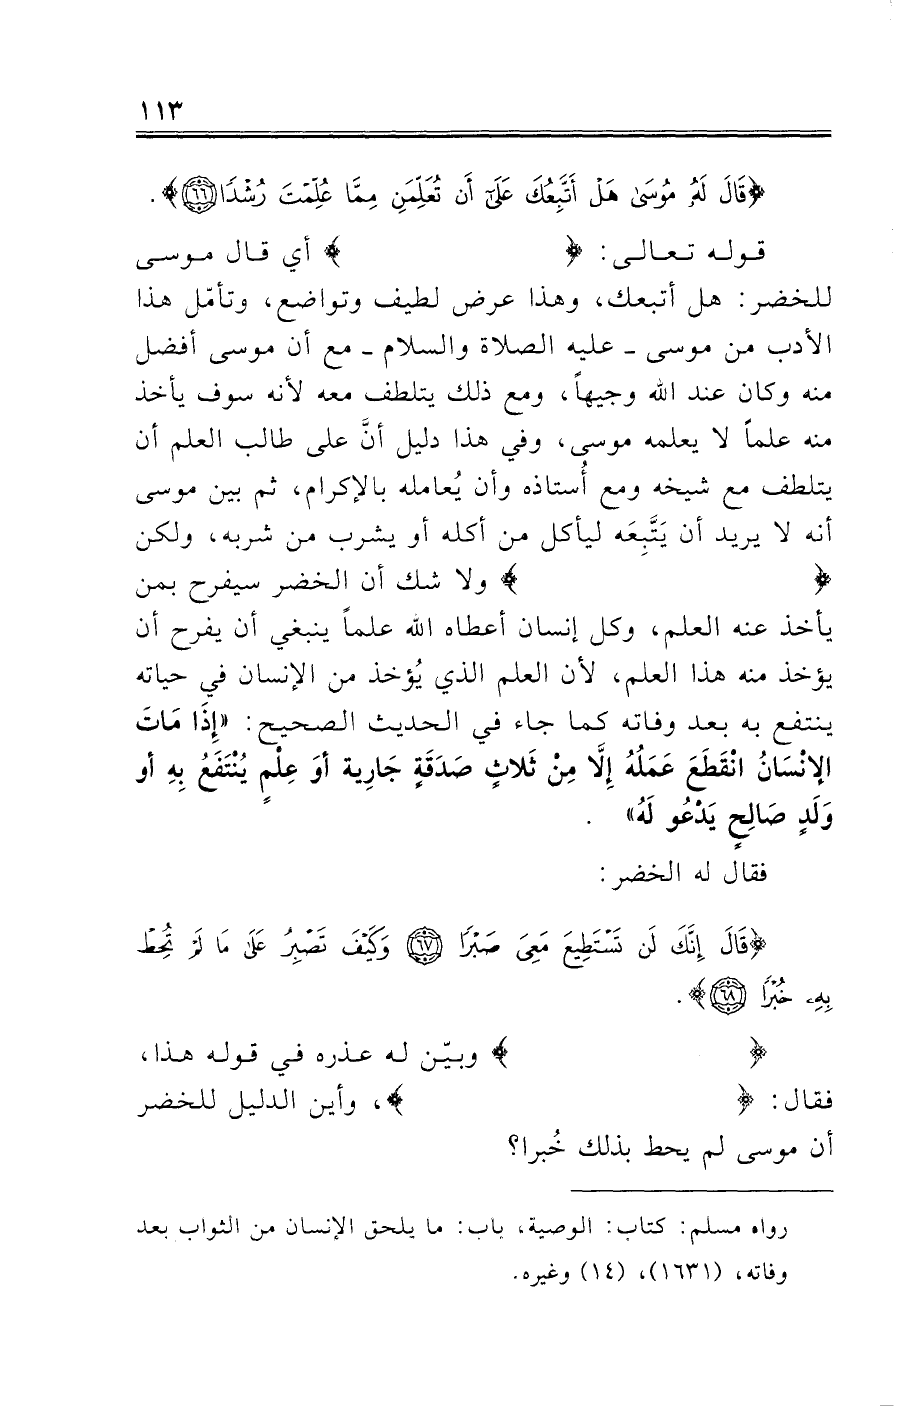 ١١٣
﴿قَالَ لَهُۥ مُوسَىٰ هَلْ أَتَّبِعُكَ عَلَىٰٓ أَن تُعَلِّمَنِ مِمَّا عُلِّمْتَ رُشْدًا ۝٦٦﴾ .
قوله تعالى: ﴿ ﴾ أي قال موسى
للخضر: هل أتبعك، وهذا عرض لطيف وتواضع، وتأمّل هذا
الأدب من موسى ـ عليه الصلاة والسلام ـ مع أن موسى أفضل
منه وكان عند الله وجيهاً، ومع ذلك يتلطف معه لأنه سوف يأخذ
منه علماً لا يعلمه موسى، وفي هذا دليل أنَّ على طالب العلم أن
يتلطف مع شيخه ومع أُستاذه وأن يُعامله بالإكرام، ثم بين موسى
أنه لا يريد أن يَتَّبِعَه ليأكل من أكله أو يشرب من شربه، ولكن
﴿ ﴾ ولا شك أن الخضر سيفرح بمن
يأخذ عنه العلم، وكل إنسان أعطاه الله علماً ينبغي أن يفرح أن
يؤخذ منه هذا العلم، لأن العلم الذي يُؤخذ من الإنسان في حياته
ينتفع به بعد وفاته كما جاء في الحديث الصحيح: «إِذَا مَاتَ
الإنْسَانُ انْقَطَعَ عَمَلُهُ إِلَّا مِنْ ثَلاثٍ صَدَقَةٍ جَارِية أوَ عِلْمٍ يُنْتَفَعُ بِهِ أو
وَلَدٍ صَالِحٍ يَدْعُو لَهُ» .
فقال له الخضر:
﴿قَالَ إِنَّكَ لَن تَسْتَطِيعَ مَعِىَ صَبْرًا ۝٦٧ وَكَيْفَ تَصْبِرُ عَلَىٰ مَا لَمْ تُحِطْ
بِهِۦ خُبْرًا ۝٦٨﴾ .
﴿ ﴾ وبيّن له عذره في قوله هذا،
فقال: ﴿ ﴾، وأين الدليل للخضر
أن موسى لم يحط بذلك خُبرا؟
رواه مسلم: كتاب: الوصية، باب: ما يلحق الإنسان من الثواب بعد
وفاته، (١٦٣١)، (١٤) وغيره.